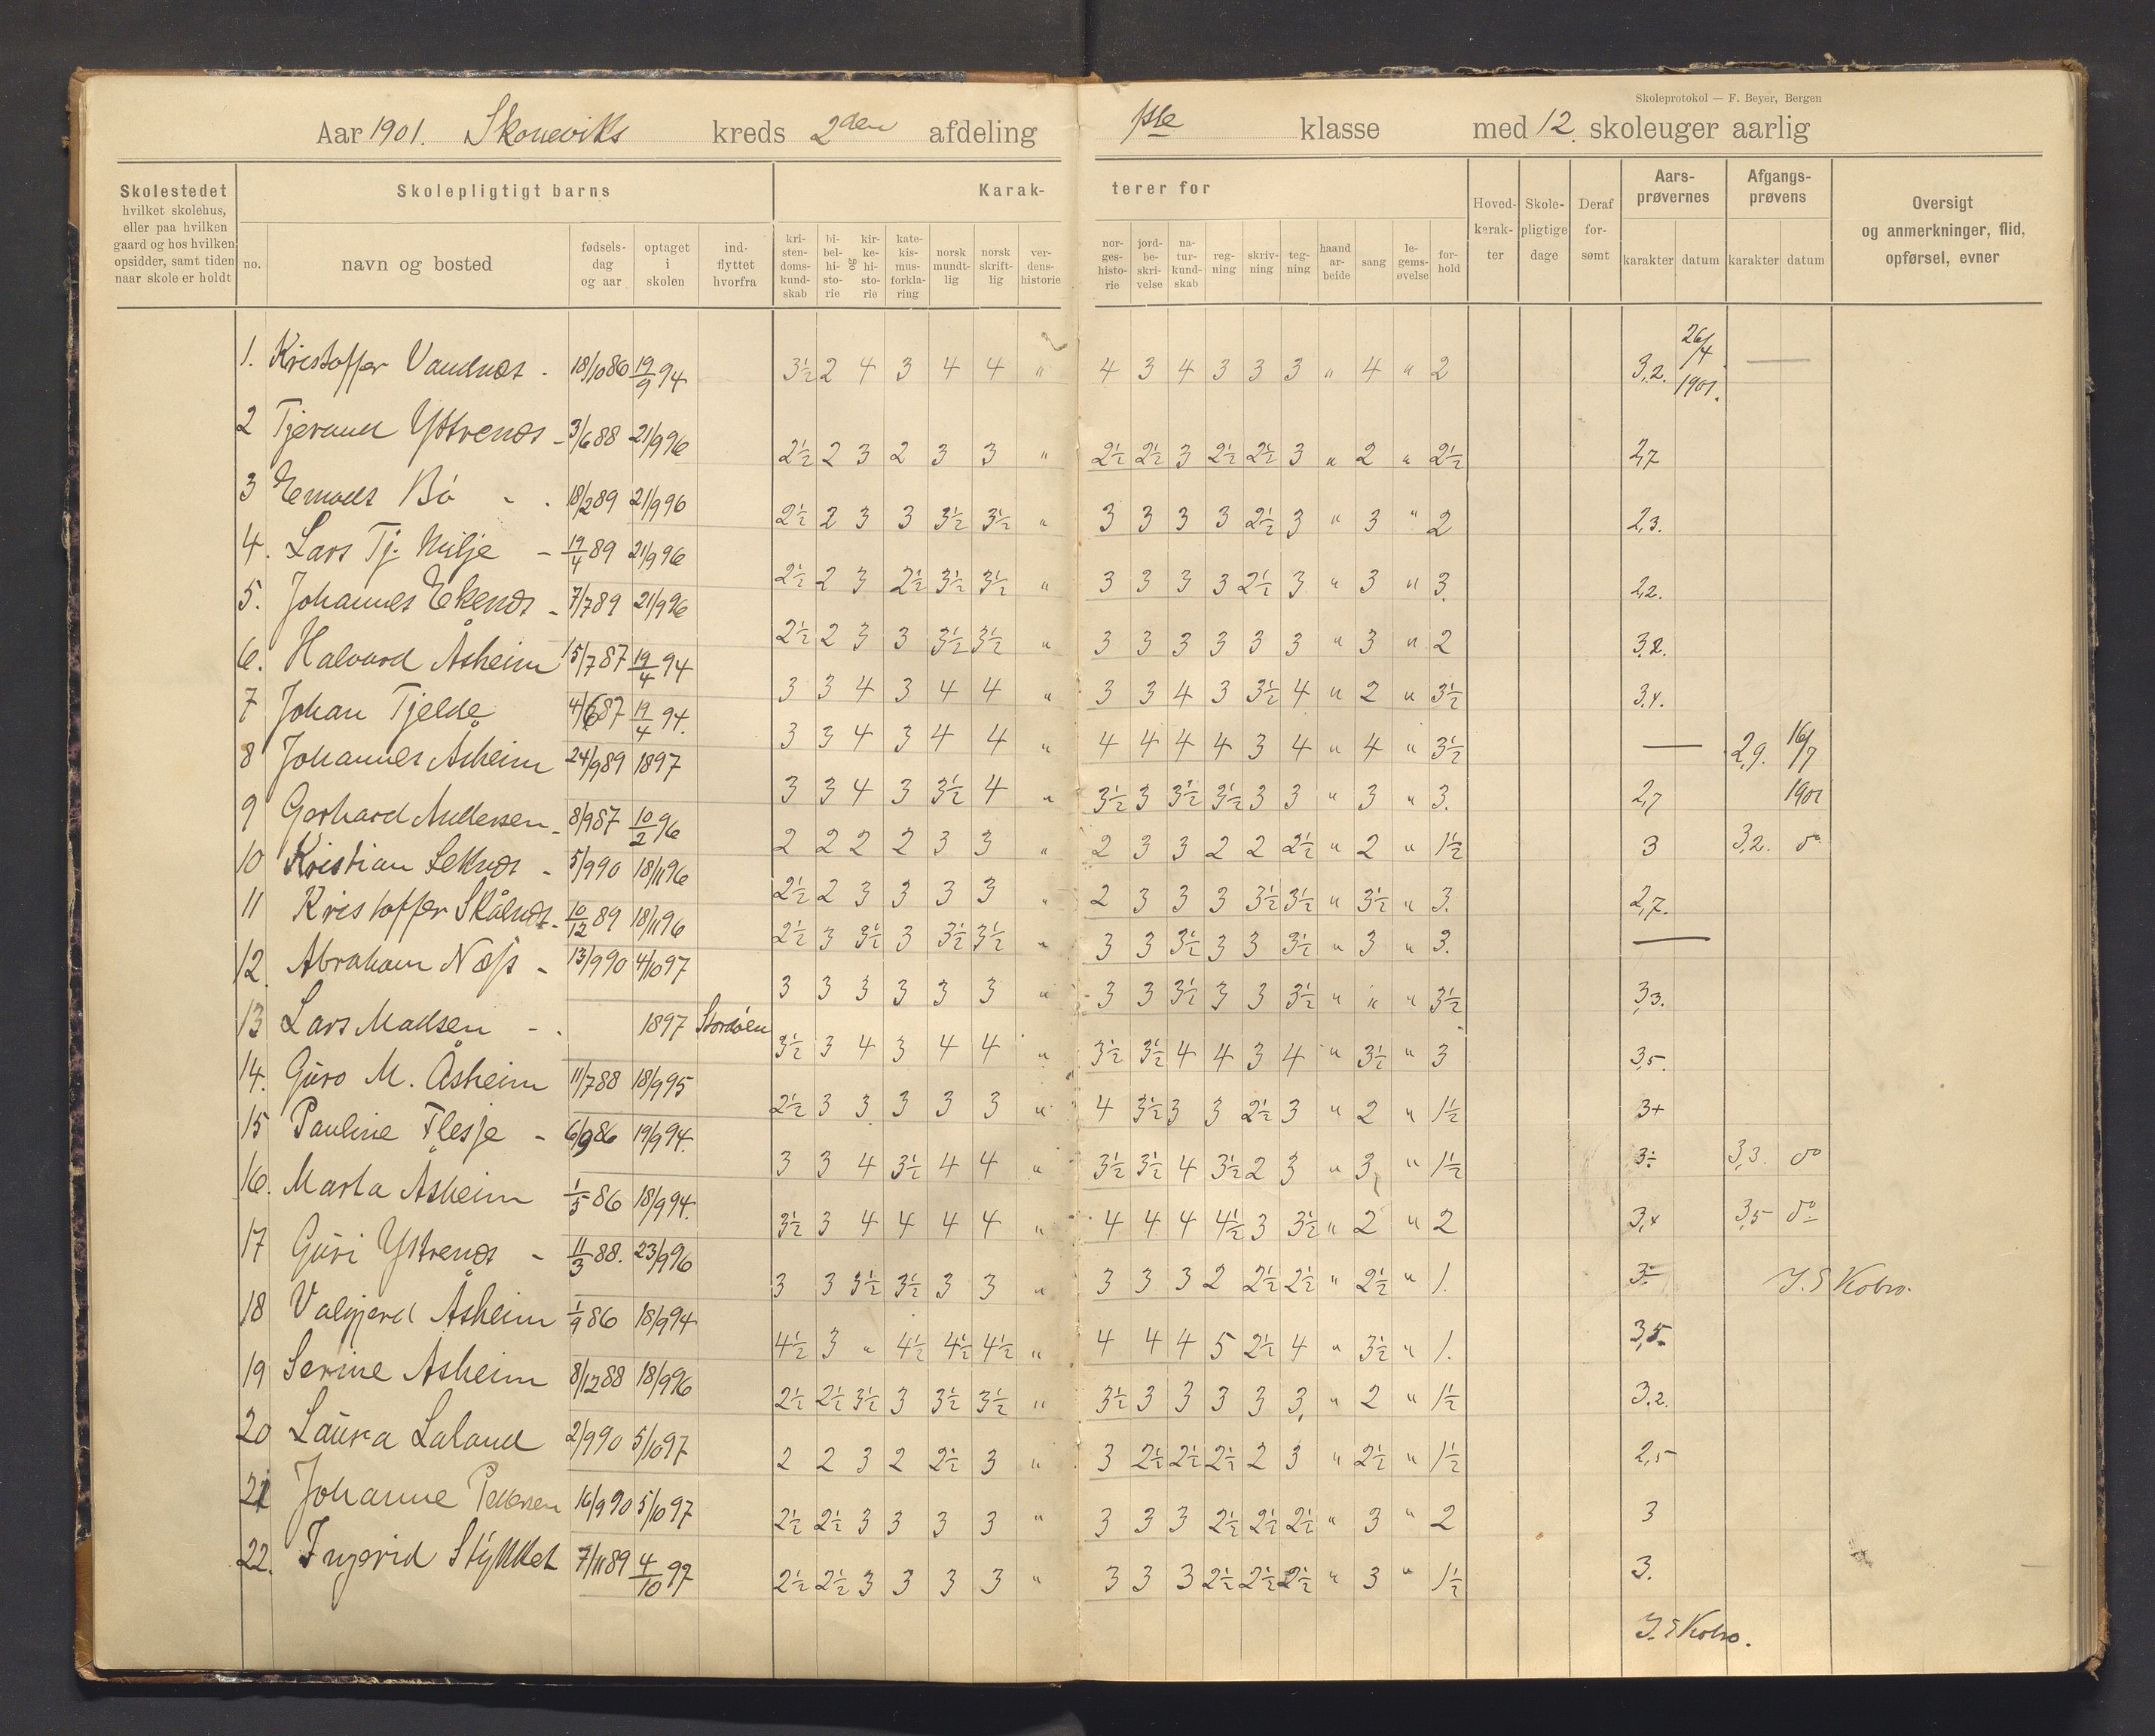 Skoleprotokol — F. Beyer, Bergen
Aar 1901. Skoneviks kreds 2den afdeling 1ste klasse med 12 skoleuger aarlig
Skolestedet hvilket skolehus, eller paa hvilken gaard og hos hvilken opsidder, samt tiden naar skole er holdt
Skolepligtigt barns
Karakterer for
no. navn og bosted fødselsdag og aar optaget i skolen indflyttet hvorfra
kristendomskundskab bibelhistorie og kirkehistorie katekismusforklaring norsk mundtlig norsk skriftlig verdenshistorie
norgeshistorie jordbeskrivelse naturkundskab regning skrivning tegning haandarbeide sang legemsøvelse forhold
Hovedkarakter Skolepligtige dage Deraf forsømt
Aarsprøvernes karakter datum
Afgangsprøvens karakter datum
Oversigt og anmerkninger, flid, opførsel, evner
1. Kristoffer Vandnæs - 18/10 86 19/9 94 3½ 2 4 3 4 4 " 4 3 4 3 3 3 " 4 " 2 3,2. 26/4 1901. —
2 Tjerand Ystrenæs - 3/6 88 21/9 96 2½ 2 3 2 3 3 " 2½ 2½ 3 2½ 2½ 3 " 2 " 2½ 2,7
3 Bö - - 18/2 89 21/9 96 2½ 2 3 3 3½ 3½ " 3 3 3 3 2½ 3 " 3 " 2 2,3.
4. Lars Tj. Milje - 19/4 89 21/9 96 2½ 2 3 2½ 3½ 3½ " 3 3 3 3 2½ 3 " 3 " 3. 2,2.
5. Johannes Ekenæs - 7/7 89 21/9 96 2½ 2 3 3 3½ 3½ " 3 3 3 3 3 3 " 3 " 2 3,2.
6. Halvard Åsheim 15/7 87 19/4 94 3 3 4 3 4 4 " 3 3 4 3 3½ 4 " 2 " 3½ 3,4.
7 Johan Tjelde 4/6 87 19/4 94. 3 3 4 3 4 4 " 4 4 4 4 3 4 " 4 " 3½ — 2,9. 16/7 1901
8 Johannes Åsheim 24/9 89 1897 3 3 4 3 3½ 4 " 3½ 3 3½ 3½ 3 3 " 3 " 3. 2,7
9 Gerhard Andersen - 8/9 87 10/2 96 2 2 2 2 3 3 " 2 3 3 2 2 2½ " 2 " 1½ 3 3,2. do
10 Kristian Seknæs - 5/9 90 18/11 96 2½ 2 3 3 3 3 " 2 3 3 3 3½ 3½ " 3½ " 3. 2,7.
11 Kristoffer Skålnæs - 10/12 89 18/11 96 2½ 3 3½ 3 3½ 3½ " 3 3 3½ 3 3 3½ " 3 " 3. —
12. Abraham Næss - 13/9 90 4/10 97 3 3 3 3 3 3 " 3 3 3½ 3 3 3½ " " " 3½ 3,3.
13 Lars Madsen - . 1897 Stordöen 3½ 3 4 3 4 4 " 3½ 3½ 4 4 3 4 " 3½ " 3 3,5.
14. Guro M. Åsheim 11/7 88 18/9 95 2½ 3 3 3 3 3 " 4 3½ 3 3 2½ 3 " 2 " 1½ 3+
15 Pauline Flesje - 6/9 86 19/9 94. 3 3 4 3½ 4 4 " 3½ 3½ 4 3½ 2 3 " 3 " 1½ 3÷ 3,3. do
16. Marta Åsheim 1/5 86 18/9 94. 3½ 3 4 4 4 4 " 4 4 4 4½ 3 3½ " 2 " 2 3,4 3,5 do
17 Guri Ystrenæs - 11/3 88. 23/9 96 3 3 3½ 3½ 3 3 " 3 3 3 2 2½ 2½ " 2½ " 1. 3÷ J. E Kobro.
18 Valgjerd Åsheim 1/9 86 18/9 94 4½ 3 " 4½ 4½ 4½ " 4 4 4 5 2½ 4 " 3½ " 1. 3,5.
19 Serine Åsheim 8/12 88 18/9 96 2½ 2½ 3½ 3 3½ 3½ " 3½ 3 3 3 3 3. " 2 " 1½ 3,2.
20 Laura Laland 2/9 90 5/10 97 2 2 3 2 2½ 3 " 3 2½ 2½ 2½ 2 3 " 2½ " 1½ 2,5
21 Johanne Pedersen 16/9 90 5/10 97 2½ 2½ 3 3 3 3 " 3 3 3 2½ 2½ 2½ " 3 " 2 3
22. Ingerid Stykket 7/11 89 4/10 97 2½ 2½ 3 3 3 3 " 3 3 3 2½ 2½ 2½ " 3 " 1½ 3.
J. E Kobro.